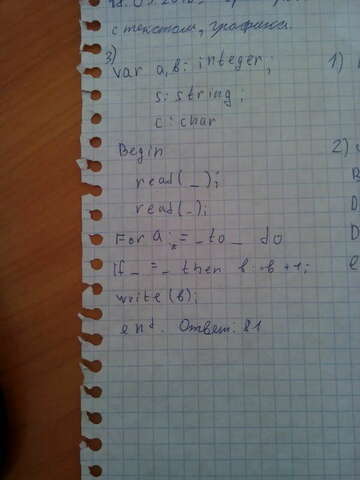 с текстом, графикой.
3)
var a, b: integer;
s: string;
c: char
Begin
read(_);
read(_);
For a:=_to_ do
If _=_ then b:=b+1;
write(b);
end. Ответ: 81
1)
2)
B
D
D
e